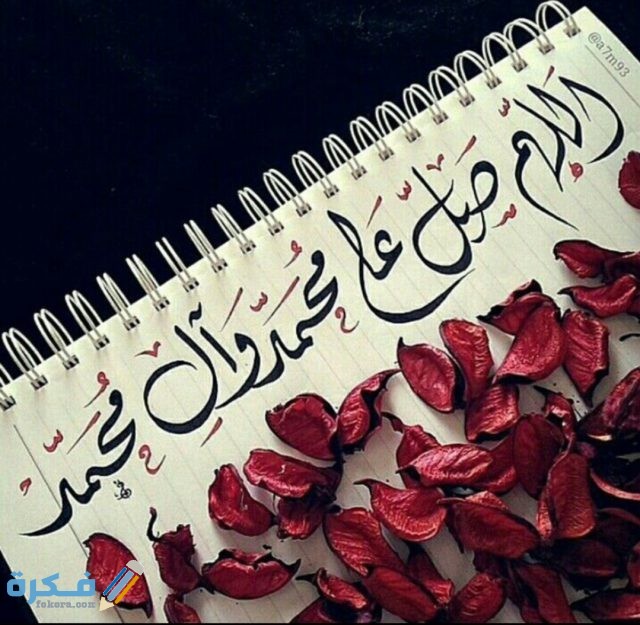 @a7m93
اللهم صل على محمد وآل محمد
فكرة
fekera.com